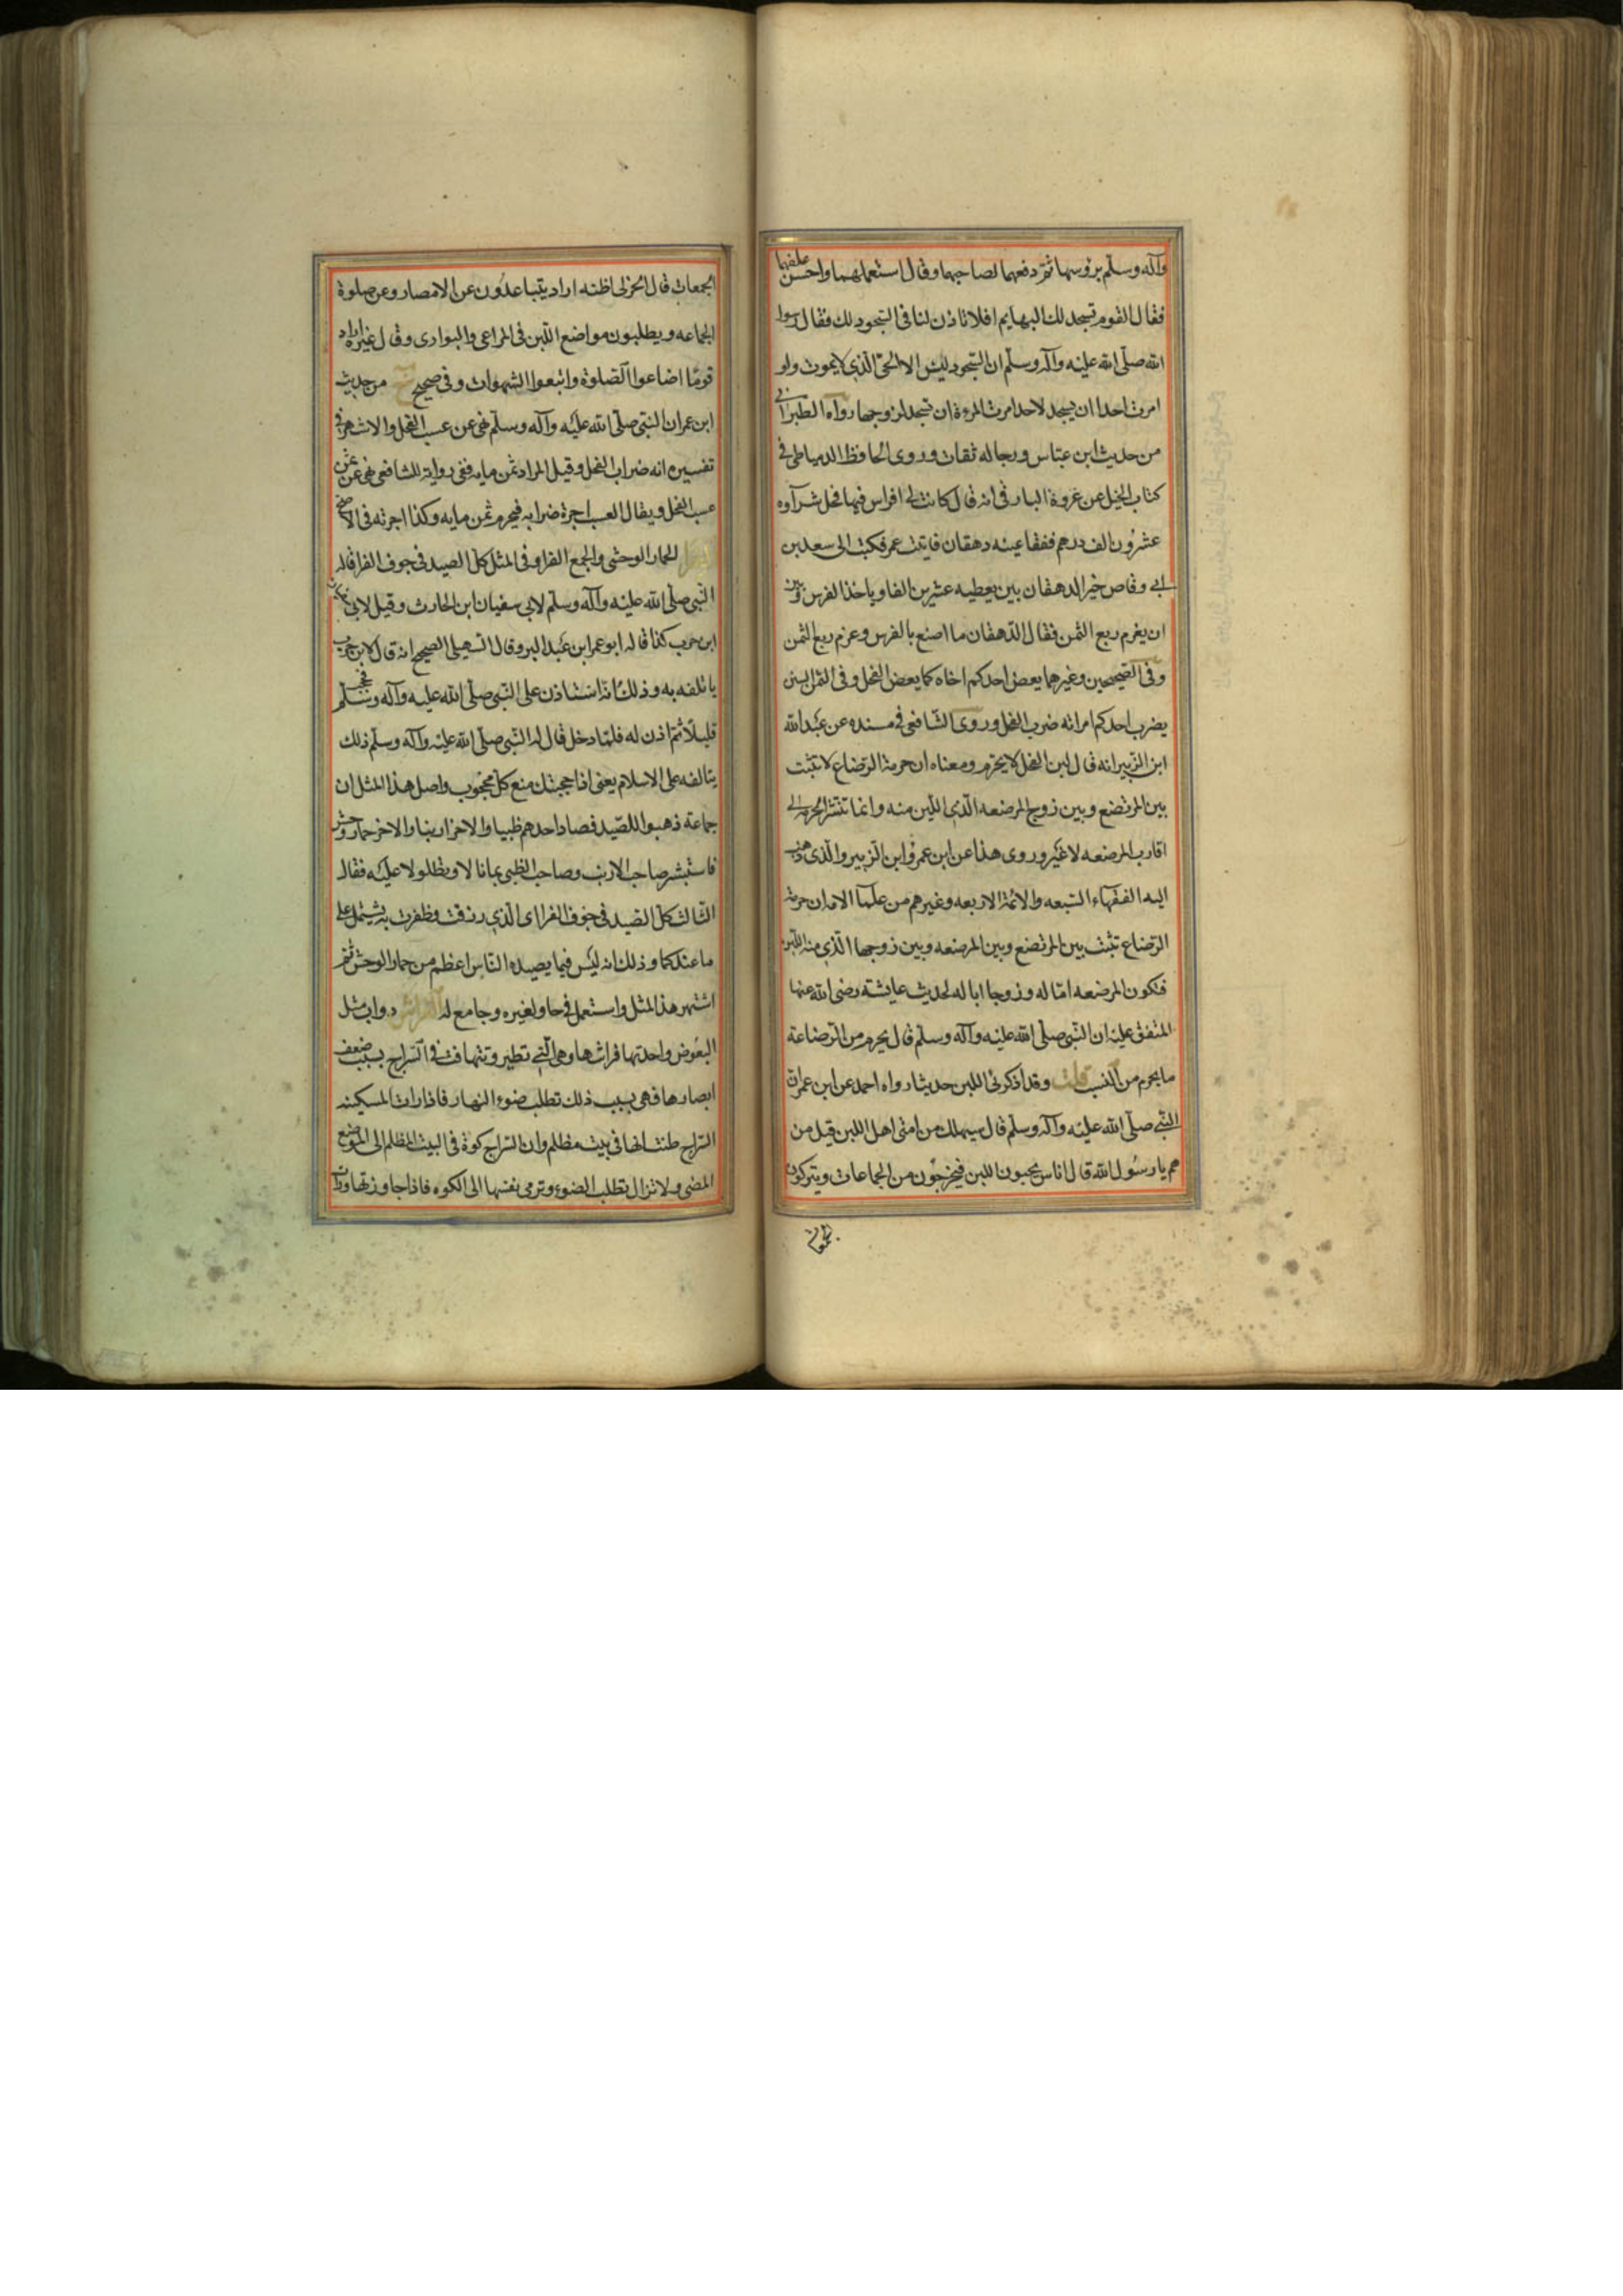 وآله وسلم بروسها ثم دفعهما لصاحبهما وقال استعملهما واحسن علفهما
فقال القوم تسجد لك البهايم افلا تاذن لنا فى السجود لك فقال رسول
الله صلى الله عليه وآله وسلم ان السجود ليس الا للحى الذى لا يموت ولو
امرت احدا ان يسجد لاحد امرت المرءة ان تسجد لزوجها رواه الطبرانى
من حديث ابن عباس ورجاله ثقات وروى الحافظ الدمياطى فى
كتاب الخيل عن عروة البارقى انه قال كانت لى افراس فيها فحل شرآوه
عشرون الف درهم ففقا عينه دهقان فاتيت عمر فكتب الى سعد بن
ابى وقاص خير الدهقان بين يعطيه عشرين الفا وياخذ الفرس وبين
ان يغرم ربع الثمن فقال الدهقان ما اصنع بالفرس وغرم ربع الثمن
وفى الصحيحين وغيرهما يعض احدكم اخاه كما يعض الفحل وفى
يضرب احدكم امراته ضرب الفحل وروى الشافعى فى مسنده عن عبد الله
ابن الزبير انه قال لبن الفحل لا يحرم ومعناه ان حرمة الرضاع لا تثبت
بين المرتضع وبين زوج المرضعه الذى اللبن منه وانما تنتشر الحرمه الى
اقارب المرضعه لا غير وروى هذا عن ابن عمر وابن الزبير والذى ذهب
اليه الفقهاء السبعه والائمة الاربعه وغيرهم من علما الامه ان حرمة
الرضاع تثبت بين المرتضع وبين المرضعه وبين زوجها الذى منه اللبن
فتكون المرضعه امّا له وزوجها ابا له لحديث عايشة رضى الله عنها
المتفق عليه ان النبى صلى الله عليه وآله وسلم قال يحرم من الرضاعة
ما يحرم من النسب قلت وقد اذكرنى اللبن حديثا رواه احمد عن ابن عمر ان
النبى صلى الله عليه وآله وسلم قال سيهلك من امتى اهل اللبن قيل من
هم يا رسول الله قال اناس يحبون اللبن فيخرجون من الجماعات ويتركون
الجمعات
الجمعات قال الحربى اظنه اراد يتباعدون عن الامصار وعن صلوة
الجماعه ويطلبون مواضع اللبن فى المراعى والبوادى وقال غيره اراد
قومًا اضاعوا الصلوة واتبعوا الشهوات وفى صحيح من حديث
ابن عمر ان النبى صلى الله عليه وآله وسلم نهى عن عسب الفحل والاشهر فى
تفسيره انه ضراب الفحل وقيل المراد ثمن مايه ففى رواية للشافعى نهى عن ثمن
عسب الفحل ويقال العسب اجرة ضرابه فيحرم ثمن مايه وكذا اجرته فى الاصح
الفرا الحمار الوحشى والجمع الفراو فى المثل كل الصيد فى جوف الفرا قاله
النبى صلى الله عليه وآله وسلم لابى سفيان ابن الحارث وقيل لابى سفيان
ابن حرب كذا قاله ابو عمر ابن عبد البر وقال السهيلى الصحيح انه قال لابن حرب
يتالفه به وذلك انه استاذن على النبى صلى الله عليه وآله وسلم فحجب
قليلًا ثم اذن له فلما دخل قال له النبى صلى الله عليه وآله وسلم ذلك
يتالفه على الاسلام يعنى اذا حجبتك منع كل محجوب واصل هذا المثل ان
جماعة ذهبوا للصيد فصاد احدهم ظبيا والاخر ارنبا والاخر حمار وحش
فاستبشر صاحب الارنب وصاحب الظبى بما نالا وتطاولا عليه فقال
الثالث كل الصيد فى جوف الفرا اى الذى رزقت وظفرت به يشتمل على
ما عندكما وذلك انه ليس فيما يصيده الناس اعظم من حمار الوحش ثم
اشتهر هذا المثل واستعمل فى حاو لغيره وجامع له الفراش دواب مثل
البعوض واحدتها فراشه وهى التى تطير وتتهافت فى السراج بسبب ضعف
ابصارها فهى بسبب ذلك تطلب ضوء النهار فاذا رات المسكينه
السراج ظنت انها فى بيت مظلم وان السراج كوة فى البيت المظلم الى الموضع
المضى ولا تزال تطلب الضوء وترمى بنفسها الى الكوه فاذا جاوزتها ورات